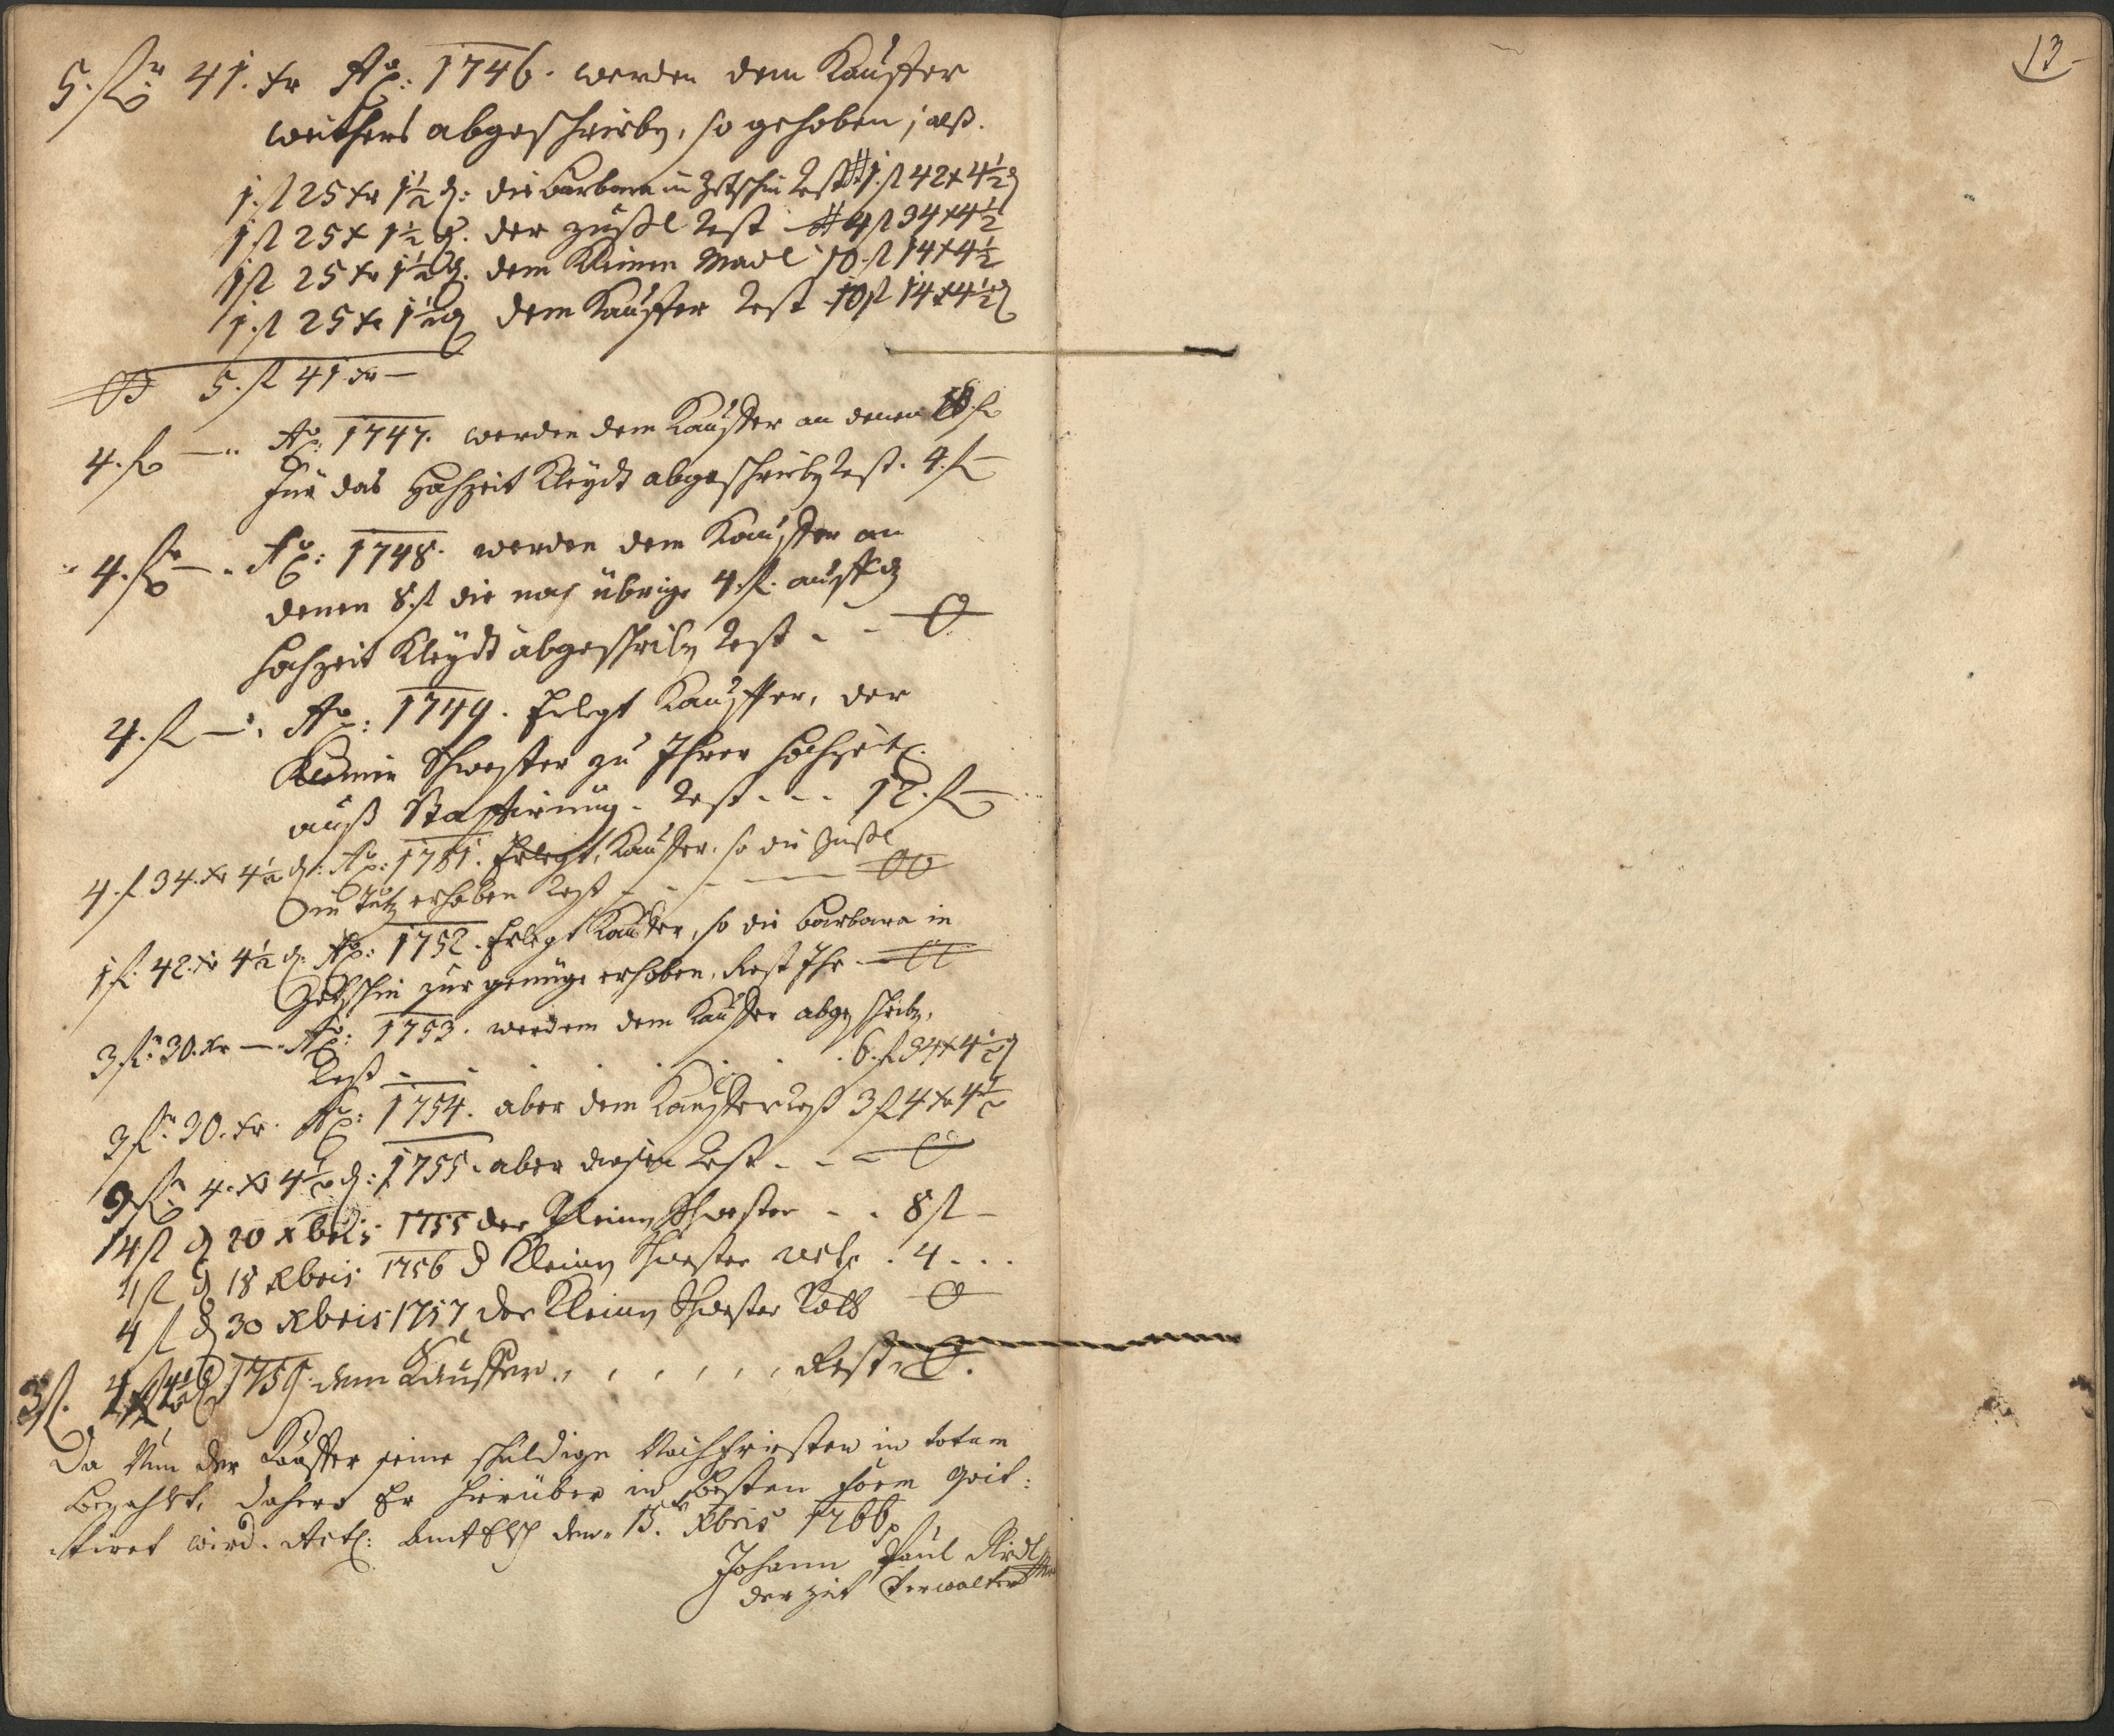 5. fl: 41. xr Ao: 1746. werden dem Kauffer
weithers abgeschrieben, so gehoben, alß.
1. fl 25 xr 1½ d: die Barbara in rest 1. fl 42 x 4½ d
1 fl 25 x 1½ d. der Zußl rest 4 fl 34 x 4½
1 fl 25 xr 1½ d. dem kleinen Madl 10. fl 14 x 4½
1. fl 25 xr 1½ d dem Kauffer rest 10 fl 14 x 4½ d
5. fl 41 xr —
4. fl — Ao: 1747. werden dem Kauffer an denen 8. fl
für das Hochzeit Kleydt abgeschrieben rest. 4. fl —
4. fl — Ao: 1748. werden dem Kauffer an
denen 8. fl die noch übrige 4. fl. auff das
Hochzeit Kleydt abgeschriben rest - - 0
4. fl — Ao: 1749. Erlegt Kauffer, der
Schwester zu Ihrer Hochzeit
auß Staffirung. rest - - - 12. fl —
4. fl 34. xr 4½ d: Ao: 1751. Erlegt Kauffer, so die Zußl
in erhoben rest - - - 00
1 fl. 42. xr 4½ d: Ao: 1752. Erlegt Kauffer, so die Barbara in
zur genüge erhoben. Rest Ihr
3 fl: 30. xr — Ao: 1753. werden dem Kauffer abgeschriben,
Rest - - . . . . . 6. fl 34 x 4½ d
3 fl: 30. xr. Ao: 1754. aber dem Kauffer rest 3 fl 4 xr 4½
3 fl: 4. xr 4½ d: 1755. aber diesen Rest - - - 0
14 fl d 20 xbris 1755 der kleinen Schwester - - 8 fl -
4 fl d 18 Xbris 1756 d kleinen Schwester rest . 4 - - -
4 fl d 30 Xbris 1757 der kleinen Schwester 0
3 fl. 4 x 4½ d 1759. dem Kauffer. , , , , , , Rest 0.
Da Nun der Kauffer seine schuldige Nachfristen in totum
bezahlt, dahero Er hierüber in besten Form quit:
:tiret wird. Actũ: Amt den 15. Xbris 1766
Johann Paul
der Zeit Verwalter
13